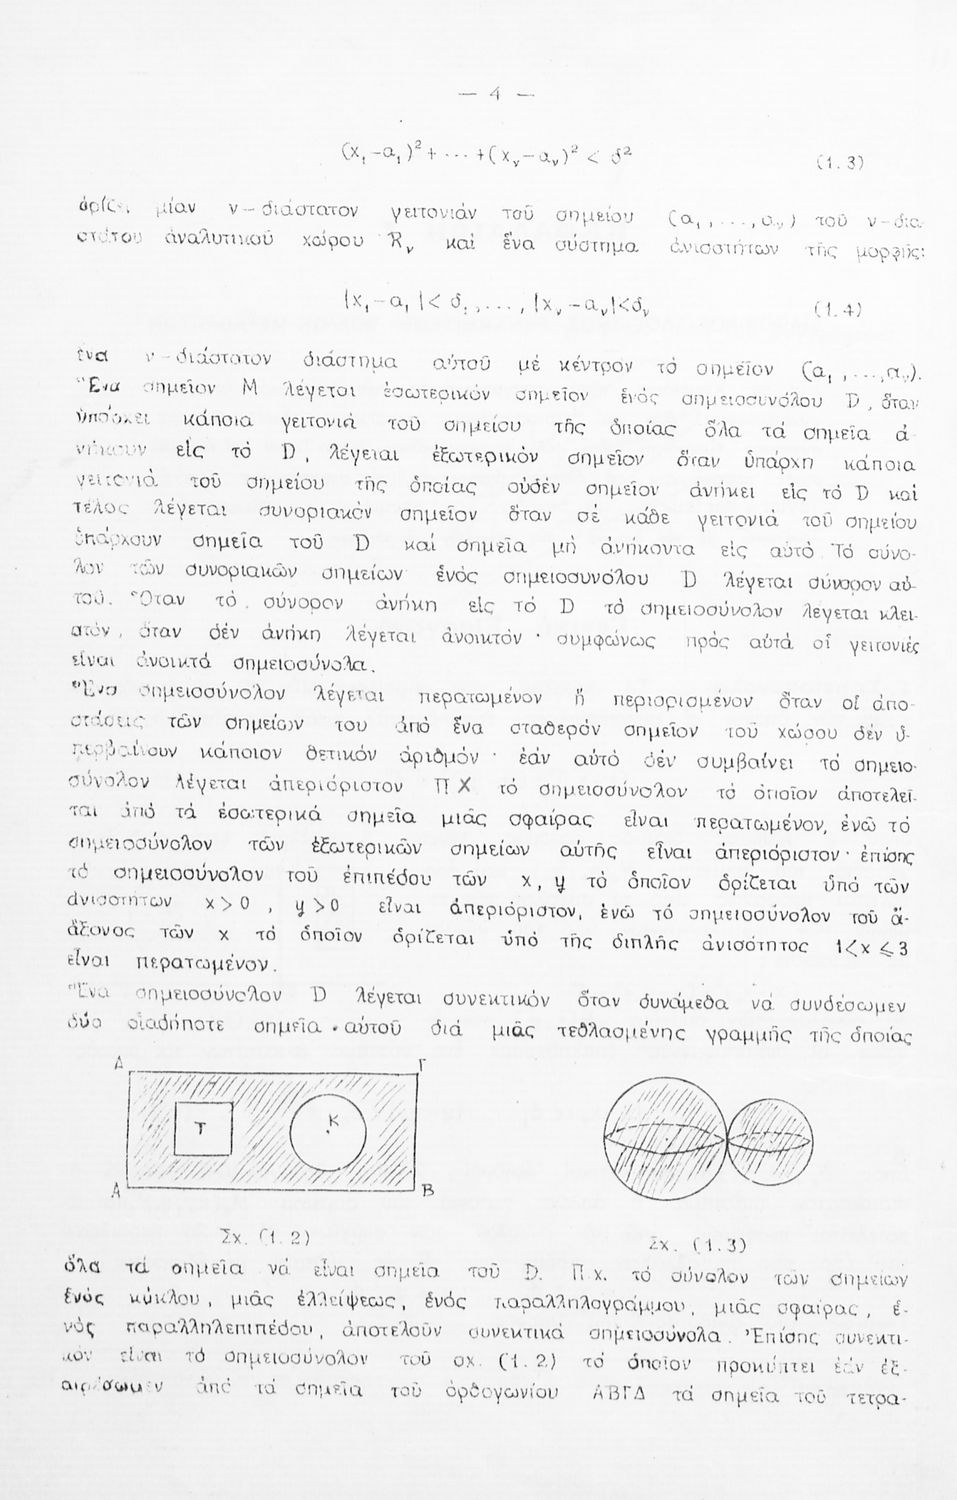 — 4 —
(x₁-α₁)² + ... + (xᵥ-αᵥ)² < δ² (1.3)
ὁρίζει μίαν ν-διάστατον γειτονιάν τοῦ σημείου (α₁,...,αᵥ) τοῦ ν-δια-
στάτου ἀναλυτικοῦ χώρου Rᵥ καί ἕνα σύστημα ἀνισοτήτων τῆς μορφῆς:
|x₁-α₁|< δ₁,..., |xᵥ-αᵥ|<δᵥ (1.4)
ἕνα ν-διάστατον διάστημα αὐτοῦ μέ κέντρον τό σημεῖον (α₁,...,αᵥ).
Ἕνα σημεῖον Μ λέγεται ἐσωτερικόν σημεῖον ἑνός σημειοσυνόλου D, ὅταν
ὑπάρχει κάποια γειτονιά τοῦ σημείου τῆς ὁποίας ὅλα τά σημεῖα ἀ-
νήκουν εἰς τό D, λέγεται ἐξωτερικόν σημεῖον ὅταν ὑπάρχη κάποια
γειτονιά τοῦ σημείου τῆς ὁποίας οὐδέν σημεῖον ἀνήκει εἰς τό D καί
τέλος λέγεται συνοριακόν σημεῖον ὅταν σέ κάθε γειτονιά τοῦ σημείου
ὑπάρχουν σημεῖα τοῦ D καί σημεῖα μή ἀνήκοντα εἰς αὐτό. Τό σύνο-
λον τῶν συνοριακῶν σημείων ἑνός σημειοσυνόλου D λέγεται σύνορον αὐ-
τοῦ. Ὅταν τό σύνορον ἀνήκη εἰς τό D τό σημειοσύνολον λέγεται κλει-
στόν, ὅταν δέν ἀνήκη λέγεται ἀνοικτόν · συμφώνως πρός αὐτά οἱ γειτονιές
εἶναι ἀνοικτά σημειοσύνολα.
Ἕνα σημειοσύνολον λέγεται περατωμένον ἤ περιορισμένον ὅταν οἱ ἀπο-
στάσεις τῶν σημείων του ἀπό ἕνα σταθερόν σημεῖον τοῦ χώρου δέν ὑ-
περβαίνουν κάποιον θετικόν ἀριθμόν · ἐάν αὐτό δέν συμβαίνει τό σημειο-
σύνολον λέγεται ἀπεριόριστον Π Χ τό σημειοσύνολον τό ὁποῖον ἀποτελεῖ-
ται ἀπό τά ἐσωτερικά σημεῖα μιᾶς σφαίρας εἶναι περατωμένον, ἐνῶ τό
σημειοσύνολον τῶν ἐξωτερικῶν σημείων αὐτῆς εἶναι ἀπεριόριστον · ἐπίσης
τό σημειοσύνολον τοῦ ἐπιπέδου τῶν x, y τό ὁποῖον ὁρίζεται ὑπό τῶν
ἀνισοτήτων x>0 , y>0 εἶναι ἀπεριόριστον, ἐνῶ τό σημειοσύνολον τοῦ ἄ-
ξονος τῶν x τό ὁποῖον ὁρίζεται ὑπό τῆς διπλῆς ἀνισότητος 1<x⩽3
εἶναι περατωμένον.
Ἕνα σημειοσύνολον D λέγεται συνεκτικόν ὅταν δυνάμεθα νά συνδέσωμεν
δύο οἱαδήποτε σημεῖα αὐτοῦ διά μιᾶς τεθλασμένης γραμμῆς τῆς ὁποίας
Δ Γ
T K
A B
Σχ. (1.2) Σχ. (1.3)
ὅλα τά σημεῖα νά εἶναι σημεῖα τοῦ D. Π.χ. τό σύνολον τῶν σημείων
ἑνός κύκλου, μιᾶς ἐλλείψεως, ἑνός παραλληλογράμμου, μιᾶς σφαίρας, ἑ-
νός παραλληλεπιπέδου, ἀποτελοῦν συνεκτικά σημειοσύνολα. Ἐπίσης συνεκτι-
κόν εἶναι τό σημειοσύνολον τοῦ σχ. (1.2) τό ὁποῖον προκύπτει ἐάν ἐξ-
αιρέσωμεν ἀπό τά σημεῖα τοῦ ὀρθογωνίου ΑΒΓΔ τά σημεῖα τοῦ τετρα-